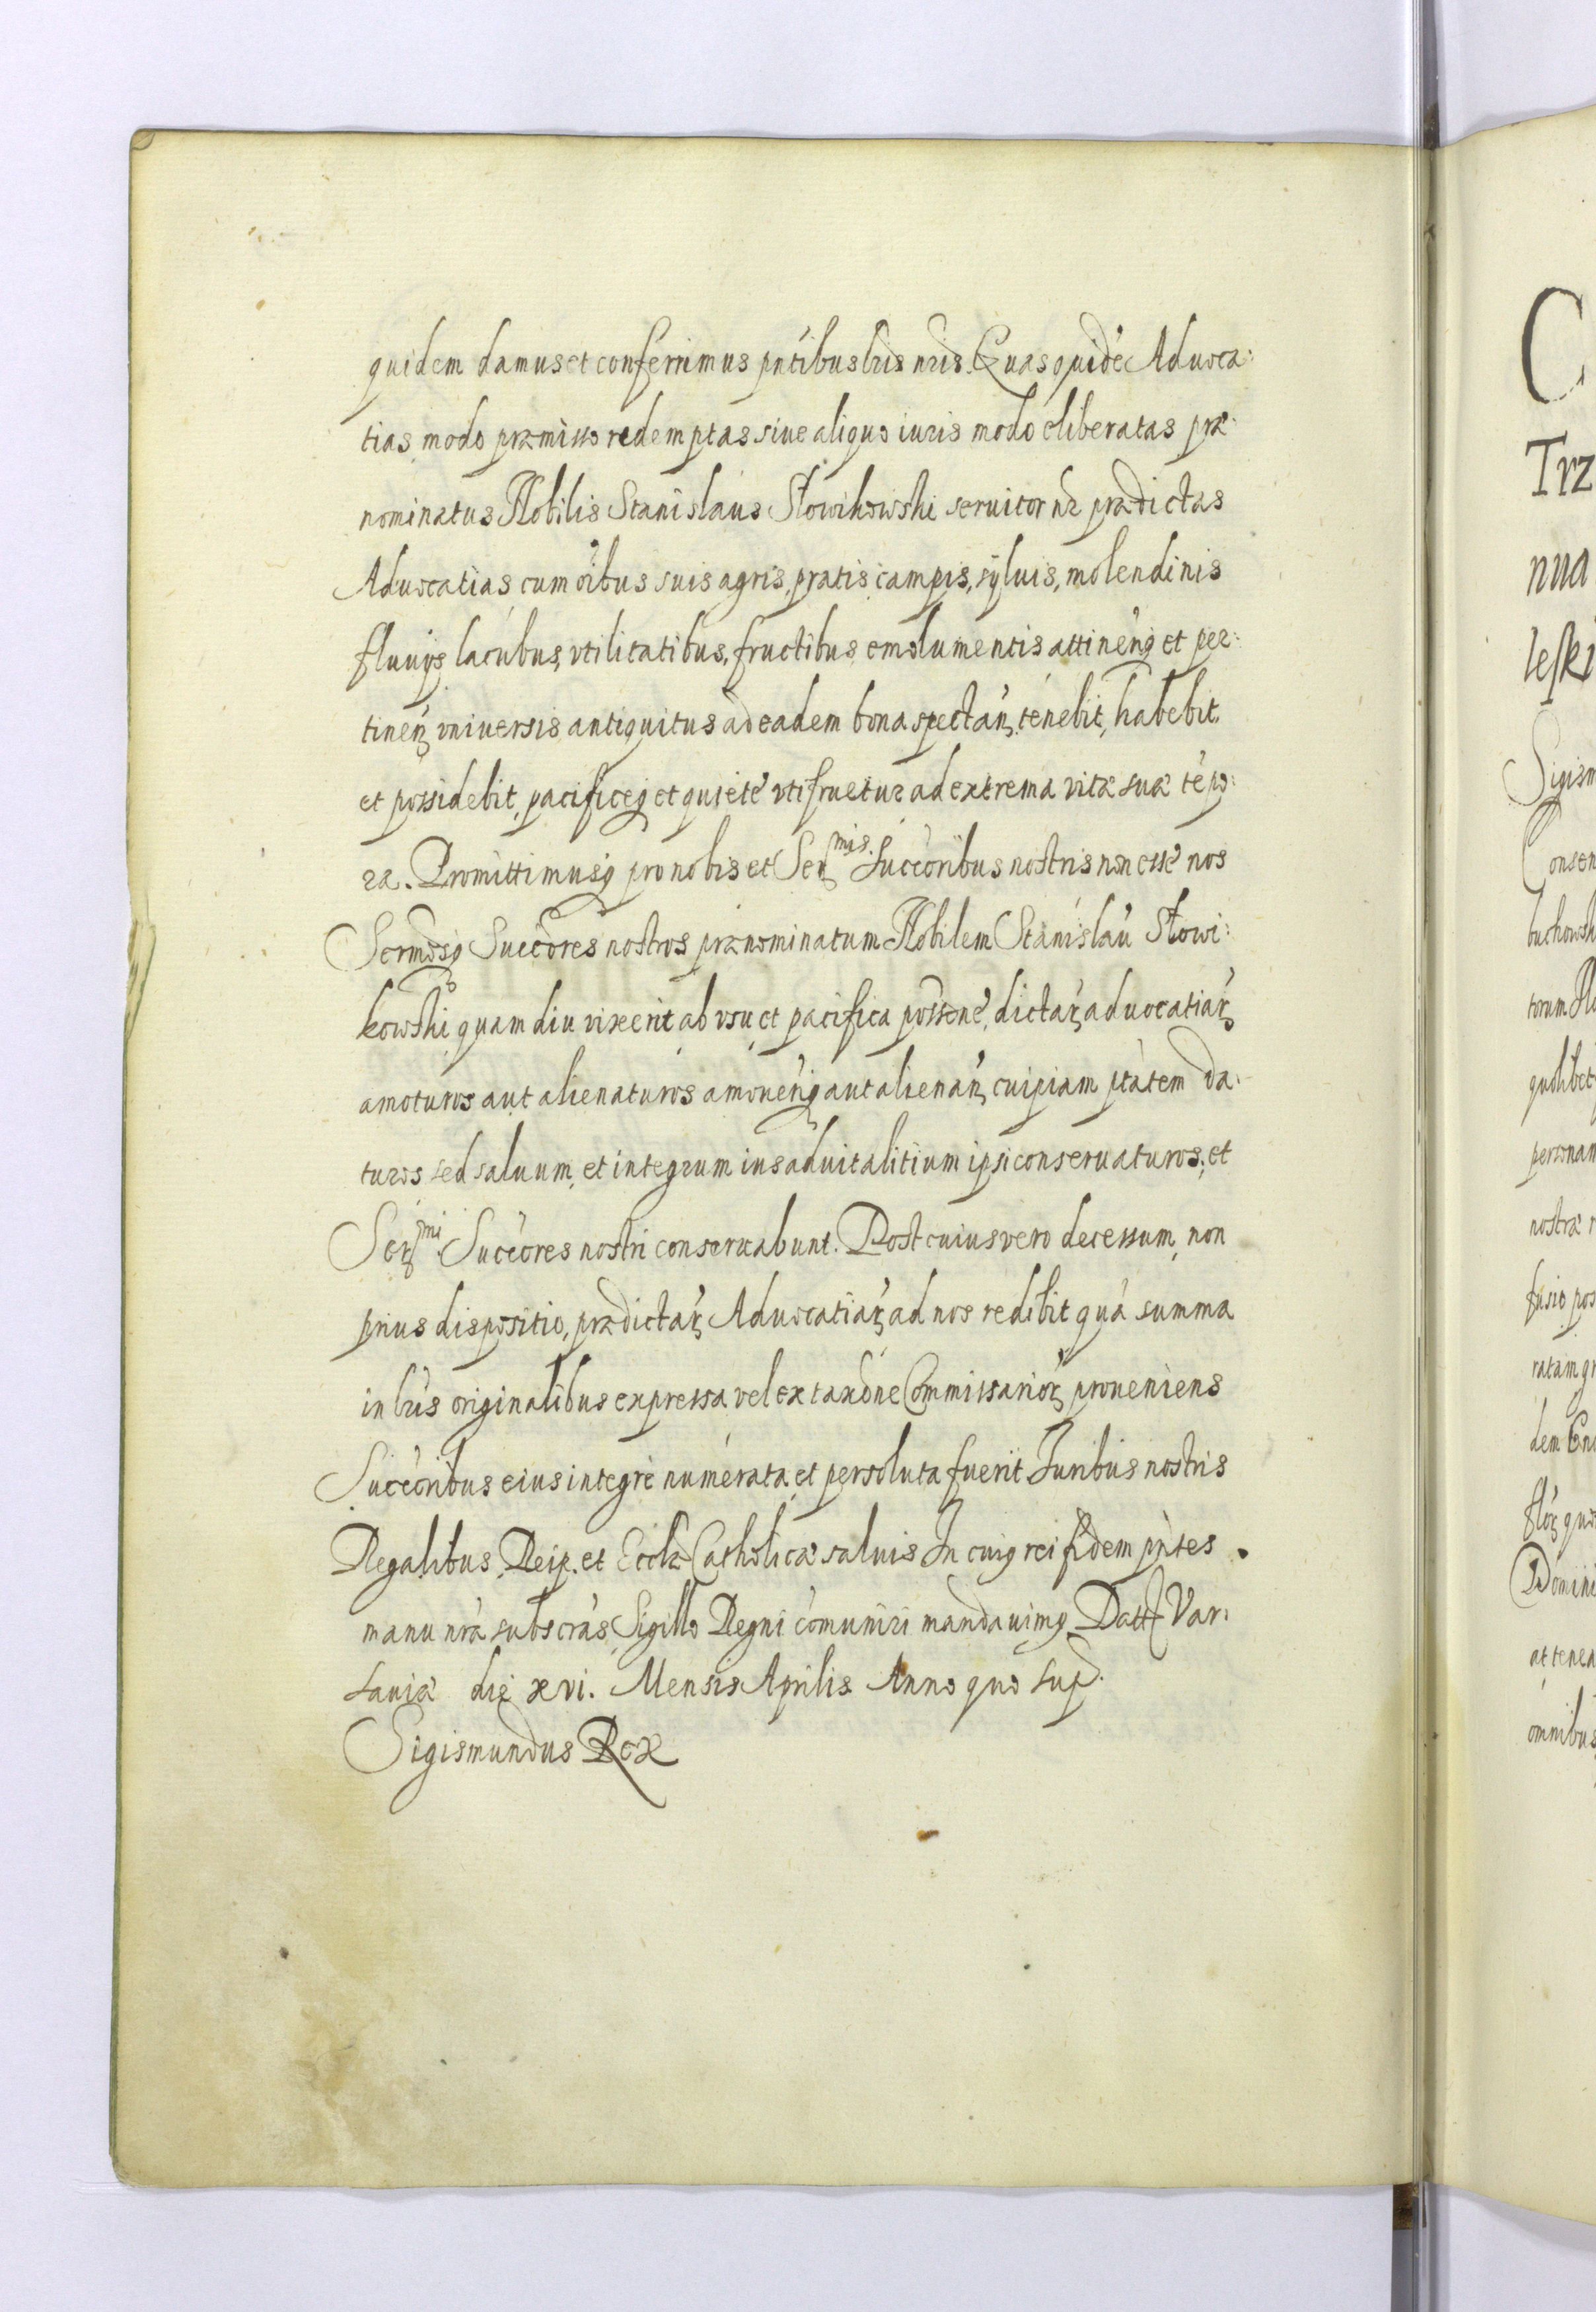 quidem damus et conferrimus pntibus lris nris. Quas quidē Aduoca:
tias modo præmisso redemptas siue aliquo iuris modo eliberatas præ:
nominatus Nobilis Stanislaus Słowikowski seruitor nr prædictas
Aduocatias cum oībus suis agris, pratis, campis, syluis, molendinis
fluuijs lacubus, vtilitatibus, fructibus emolumentis attinenq́ et per:
tineń vniuersis antiquitus ad eadem bona spectań tenebit, habebit,
et possidebit, pacificeq et quiete vtifruetur ad extrema vitæ suæ tēpo:
ra. Promittimusq pro nobis et Ser mis. Succoribus nostris non esse nos
Sermosq Succores nostros prænominatum Nobilem Stanislaū Słowi:
kowski quam diu vixerit ab vsu et pacifica possone, dictaꝝ aduocatiaꝝ
amoturos aut alienaturos amouenq́ aut alienań cuipiam ptatem da:
turos sed saluum, et integrum ius aduitalitium ipsi conseruaturos, et
Ser mi. Succores nostri conseruabunt. Post cuius vero decessum, non
prius dispositio, prædictaꝝ Aduocatiaꝝ ad nos redibit quā summa
in lris originalibus expressa vel ex taxone Commissarioꝝ proueniens
Succoribus eius integre numerata et persoluta fuerit Iuribus nostris
Regalibus, Reip. et Eccliæ Catholicæ saluis In cuiq rei fidem pntes
manu nra subscras Sigillo Regni cōmuniri mandauimq. Datt Var:
sauiæ die xvi. Mensis Aprilis Anno quo sup.
Sigismundus Rex
C
Trz
nua
leski
Sigism
Consen
buchowsk
torum No
quolibet
personam
nostræ r
fusio pos
ratam gr
dem
floꝝ quo
Domini
at tenea
omnibus